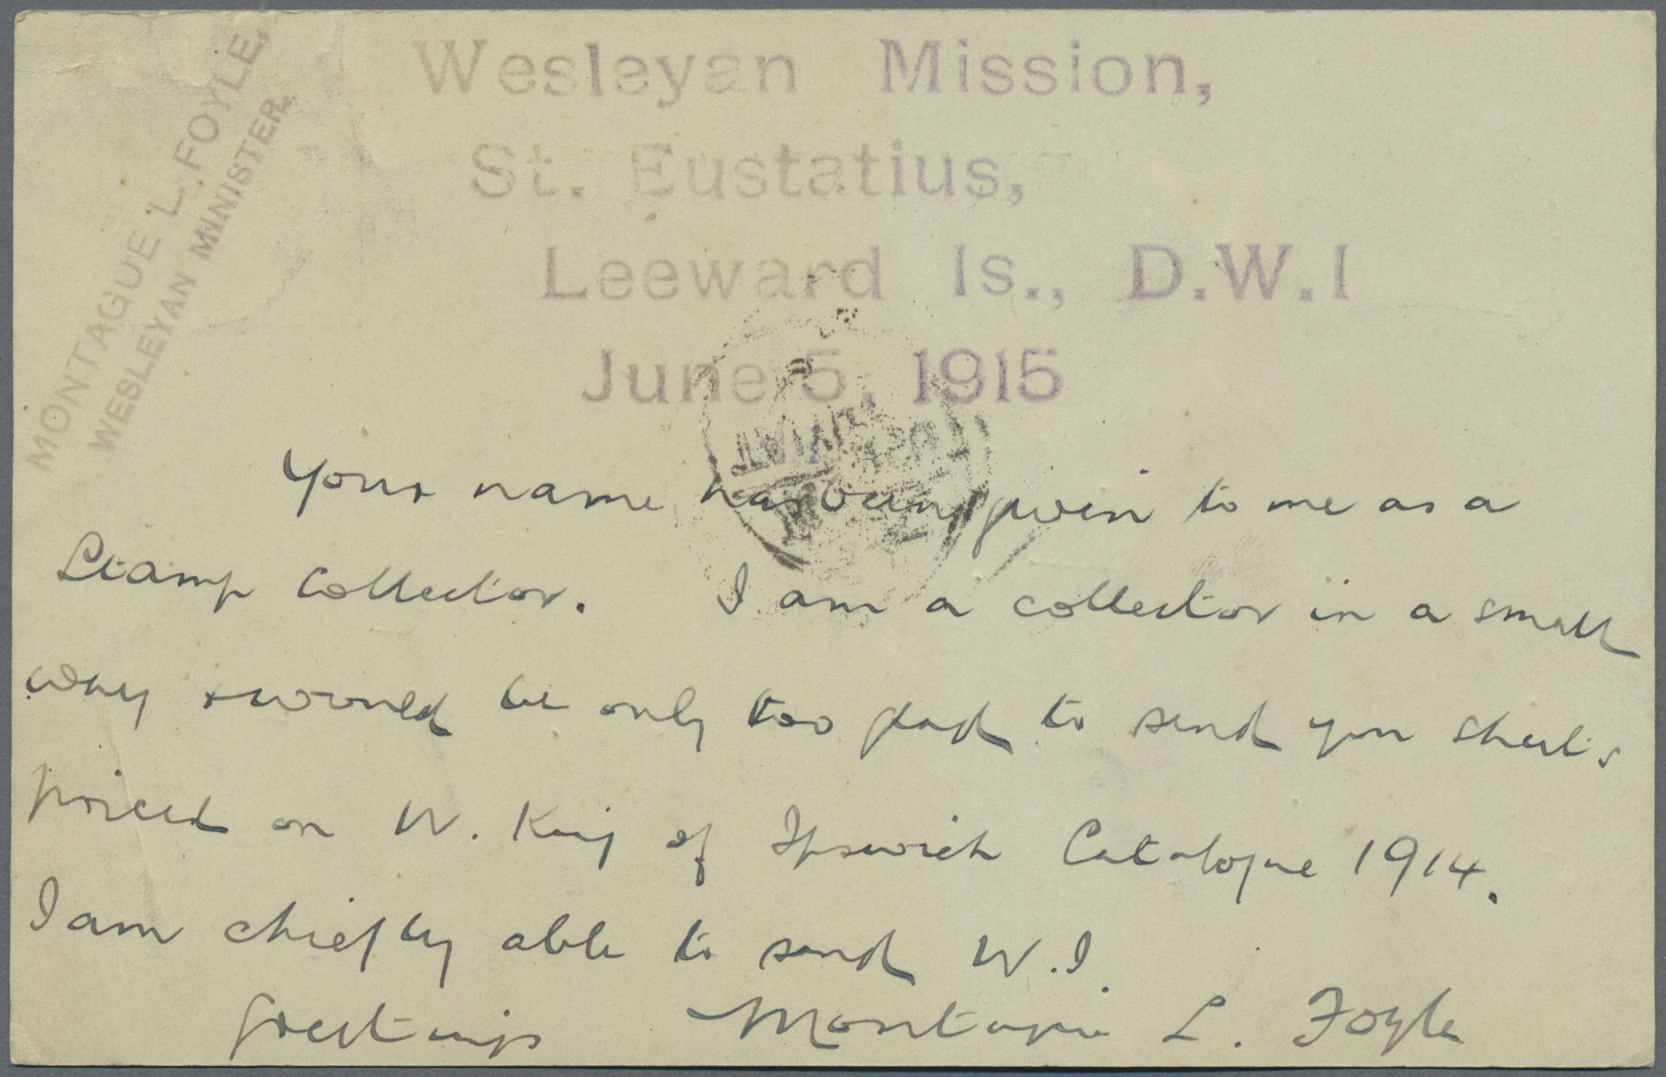 MONTAGUE L. FOYLE,
WESLEYAN MINISTER.
Wesleyan Mission,
St. Eustatius,
Leeward Is., D.W.I
June 5, 1915
Your name has been given to me as a
Stamp Collector. I am a collector in a small
way & would be only too glad to send you sheets
priced on W. King of Ipswich Catalogue 1914.
I am chiefly able to send W.I.
Greetings Montague L. Foyle